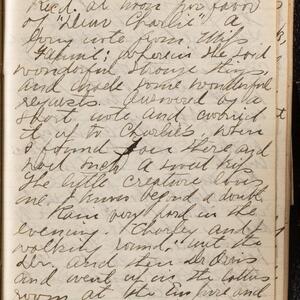 Rec'd. at noon per favor
of "Dear Charlie" a
long note from Miss
Fannie; wherein she said
wonderful strange things
and made some wonderful
requests. Answered by a
short note and carried
it up to Charlie's, when
I found her there and
had one a sweet kiss
The little creature loves
me I know beyond a doubt.
Rain very hard in the
evening. "Charley and I
walking round," with the
and then
and went up in the
room at the Empire and